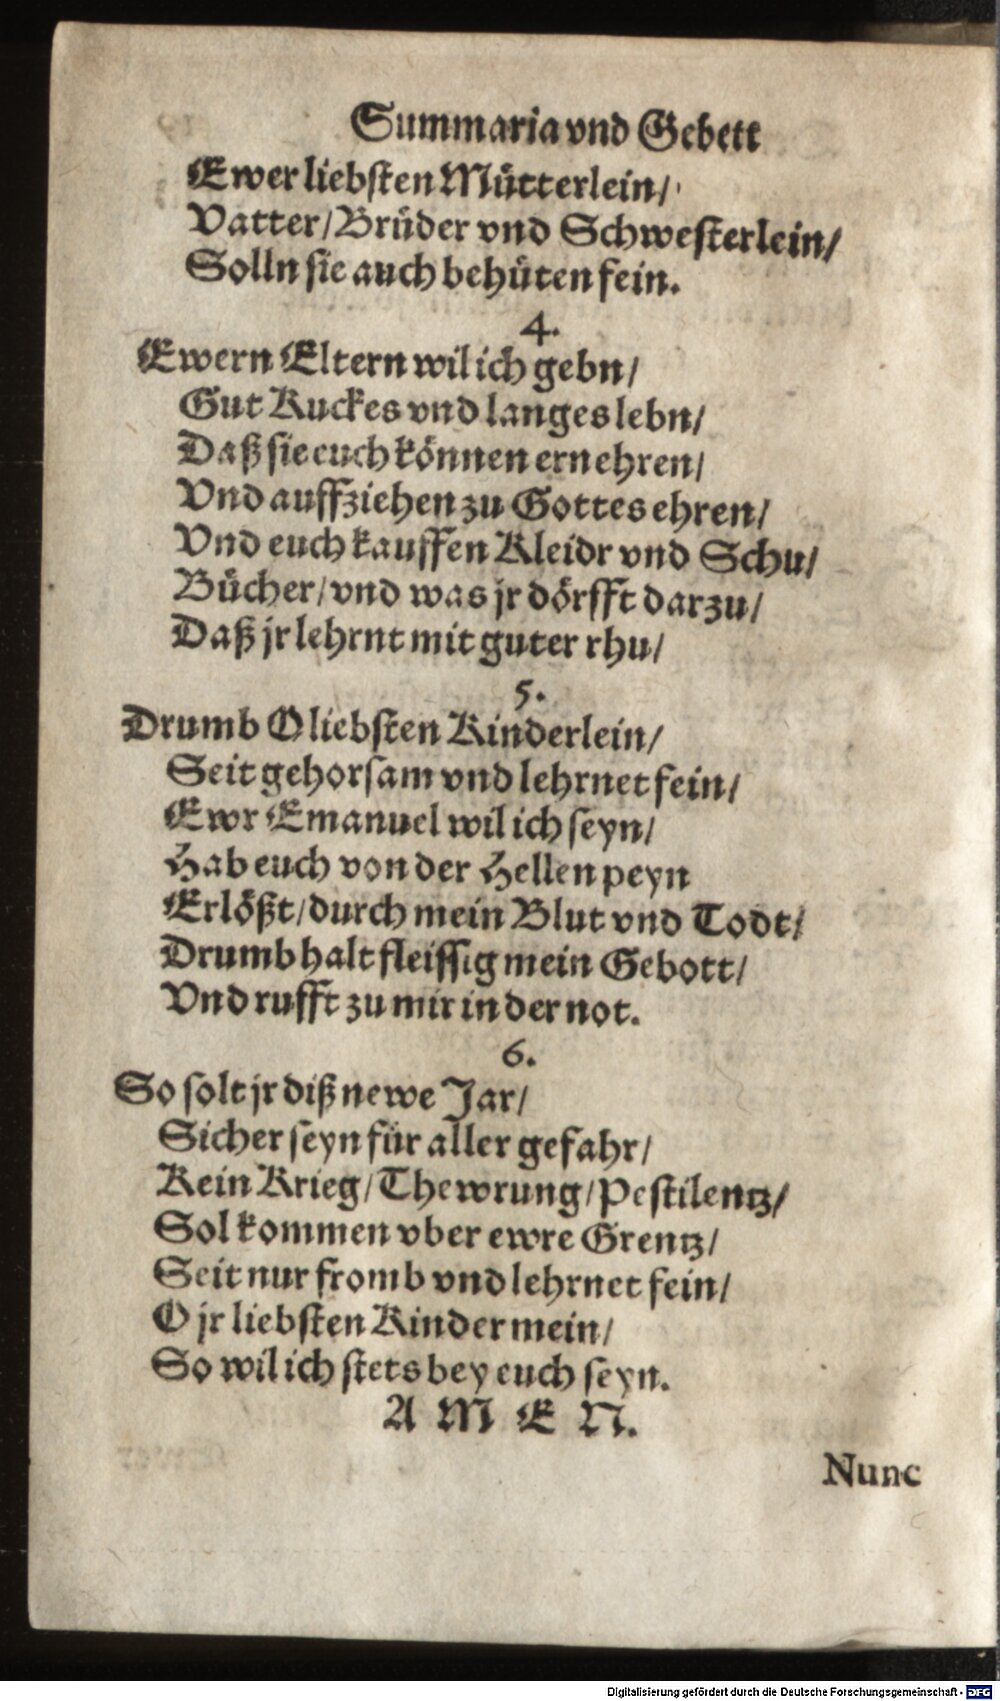 Summaria vnd Gebett
Ewer liebſten Mütterlein/
Vatter/Brüder vnd Schweſterlein/
Solln ſie auch behüten fein.
4.
Ewern Eltern wil ich gebn/
Gut Kuckes vnd langes lebn/
Daß ſie euch können ernehren/
Vnd auffziehen zu Gottes ehren/
Vnd euch kauffen Kleidr vnd Schu/
Bücher/vnd was jr dörfft darzu/
Daß jr lehrnt mit guter rhu/
5.
Drumb O liebſten Kinderlein/
Seit gehorſam vnd lehrnet fein/
Ewr Emanuel wil ich ſeyn/
Hab euch von der Hellen peyn
Erlößt/durch mein Blut vnd Todt/
Drumb halt fleiſſig mein Gebott/
Vnd rufft zu mir in der not.
6.
So ſolt jr diß newe Jar/
Sicher ſeyn für aller gefahr/
Kein Krieg/Thewrung/Peſtilentz/
Sol kommen vber ewre Grentz/
Seit nur fromb vnd lehrnet fein/
O jr liebſten Kinder mein/
So wil ich ſtets bey euch ſeyn.
A M E N.
Nunc
Digitalisierung gefördert durch die Deutsche Forschungsgemeinschaft - DFG